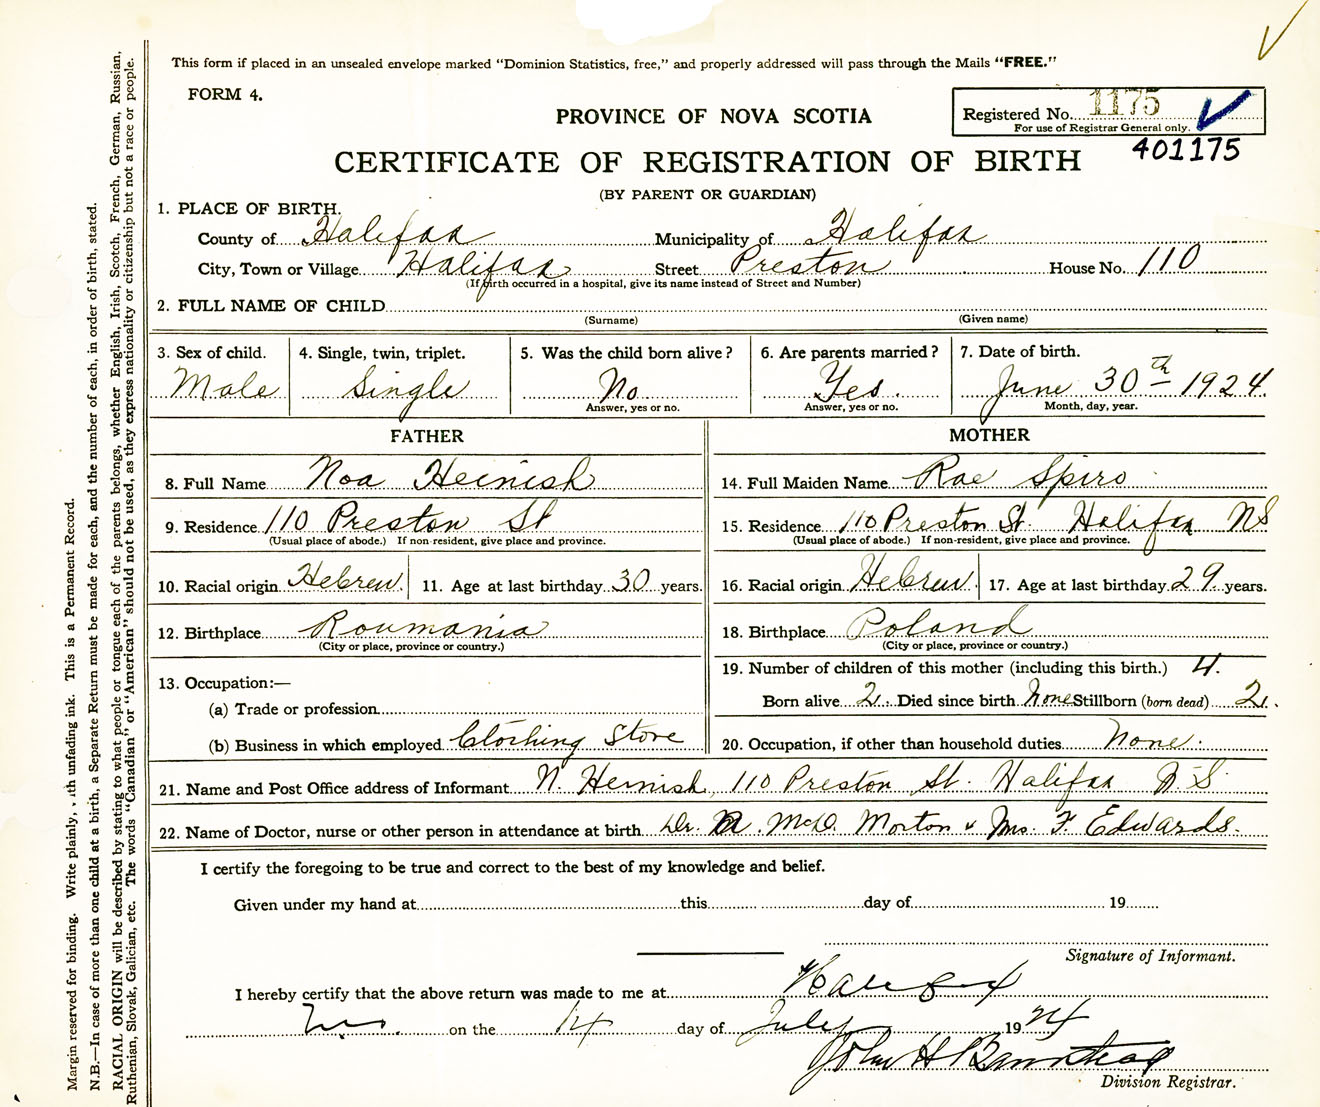 This form if placed in an unsealed envelope marked "Dominion Statistics, free," and properly addressed will pass through the Mails "FREE."
FORM 4.
PROVINCE OF NOVA SCOTIA
Registered No. 1175
For use of Registrar General only.
401175
CERTIFICATE OF REGISTRATION OF BIRTH
(BY PARENT OR GUARDIAN)
1. PLACE OF BIRTH.
County of Halifax Municipality of Halifax
City, Town or Village Halifax Street Preston House No. 110
(If birth occurred in a hospital, give its name instead of Street and Number)
2. FULL NAME OF CHILD
(Surname) (Given name)
3. Sex of child. 4. Single, twin, triplet. 5. Was the child born alive? 6. Are parents married? 7. Date of birth.
Male Single No Yes. June 30th 1924
Answer, yes or no. Answer, yes or no. Month, day, year.
FATHER MOTHER
8. Full Name Noa Heinish 14. Full Maiden Name Rae Spiro
9. Residence 110 Preston St 15. Residence 110 Preston St. Halifax NS
(Usual place of abode.) If non-resident, give place and province. (Usual place of abode.) If non-resident, give place and province.
10. Racial origin Hebrew. 11. Age at last birthday 30 years. 16. Racial origin Hebrew. 17. Age at last birthday 29 years.
12. Birthplace Roumania 18. Birthplace Poland
(City or place, province or country.) (City or place, province or country.)
19. Number of children of this mother (including this birth.) 4.
13. Occupation:—
(a) Trade or profession Born alive 2. Died since birth None Stillborn (born dead) 2.
(b) Business in which employed Clothing Store 20. Occupation, if other than household duties None.
21. Name and Post Office address of Informant N. Heinish, 110 Preston St. Halifax N.S.
22. Name of Doctor, nurse or other person in attendance at birth Dr. A. McD. Morton & Mrs. F. Edwards.
I certify the foregoing to be true and correct to the best of my knowledge and belief.
Given under my hand at this day of 19
Signature of Informant.
I hereby certify that the above return was made to me at Halifax
N.S. on the 14 day of July 1924
John H Barnstead
Division Registrar.
Margin reserved for binding. Write plainly, with unfading ink. This is a Permanent Record.
N.B.—In case of more than one child at a birth, a Separate Return must be made for each, and the number of each, in order of birth, stated.
RACIAL ORIGIN will be described by stating to what people or tongue each of the parents belongs, whether English, Irish, Scotch, French, German, Russian,
Ruthenian, Slovak, Galician, etc. The words "Canadian" or "American" should not be used, as they express nationality or citizenship but not a race or people.